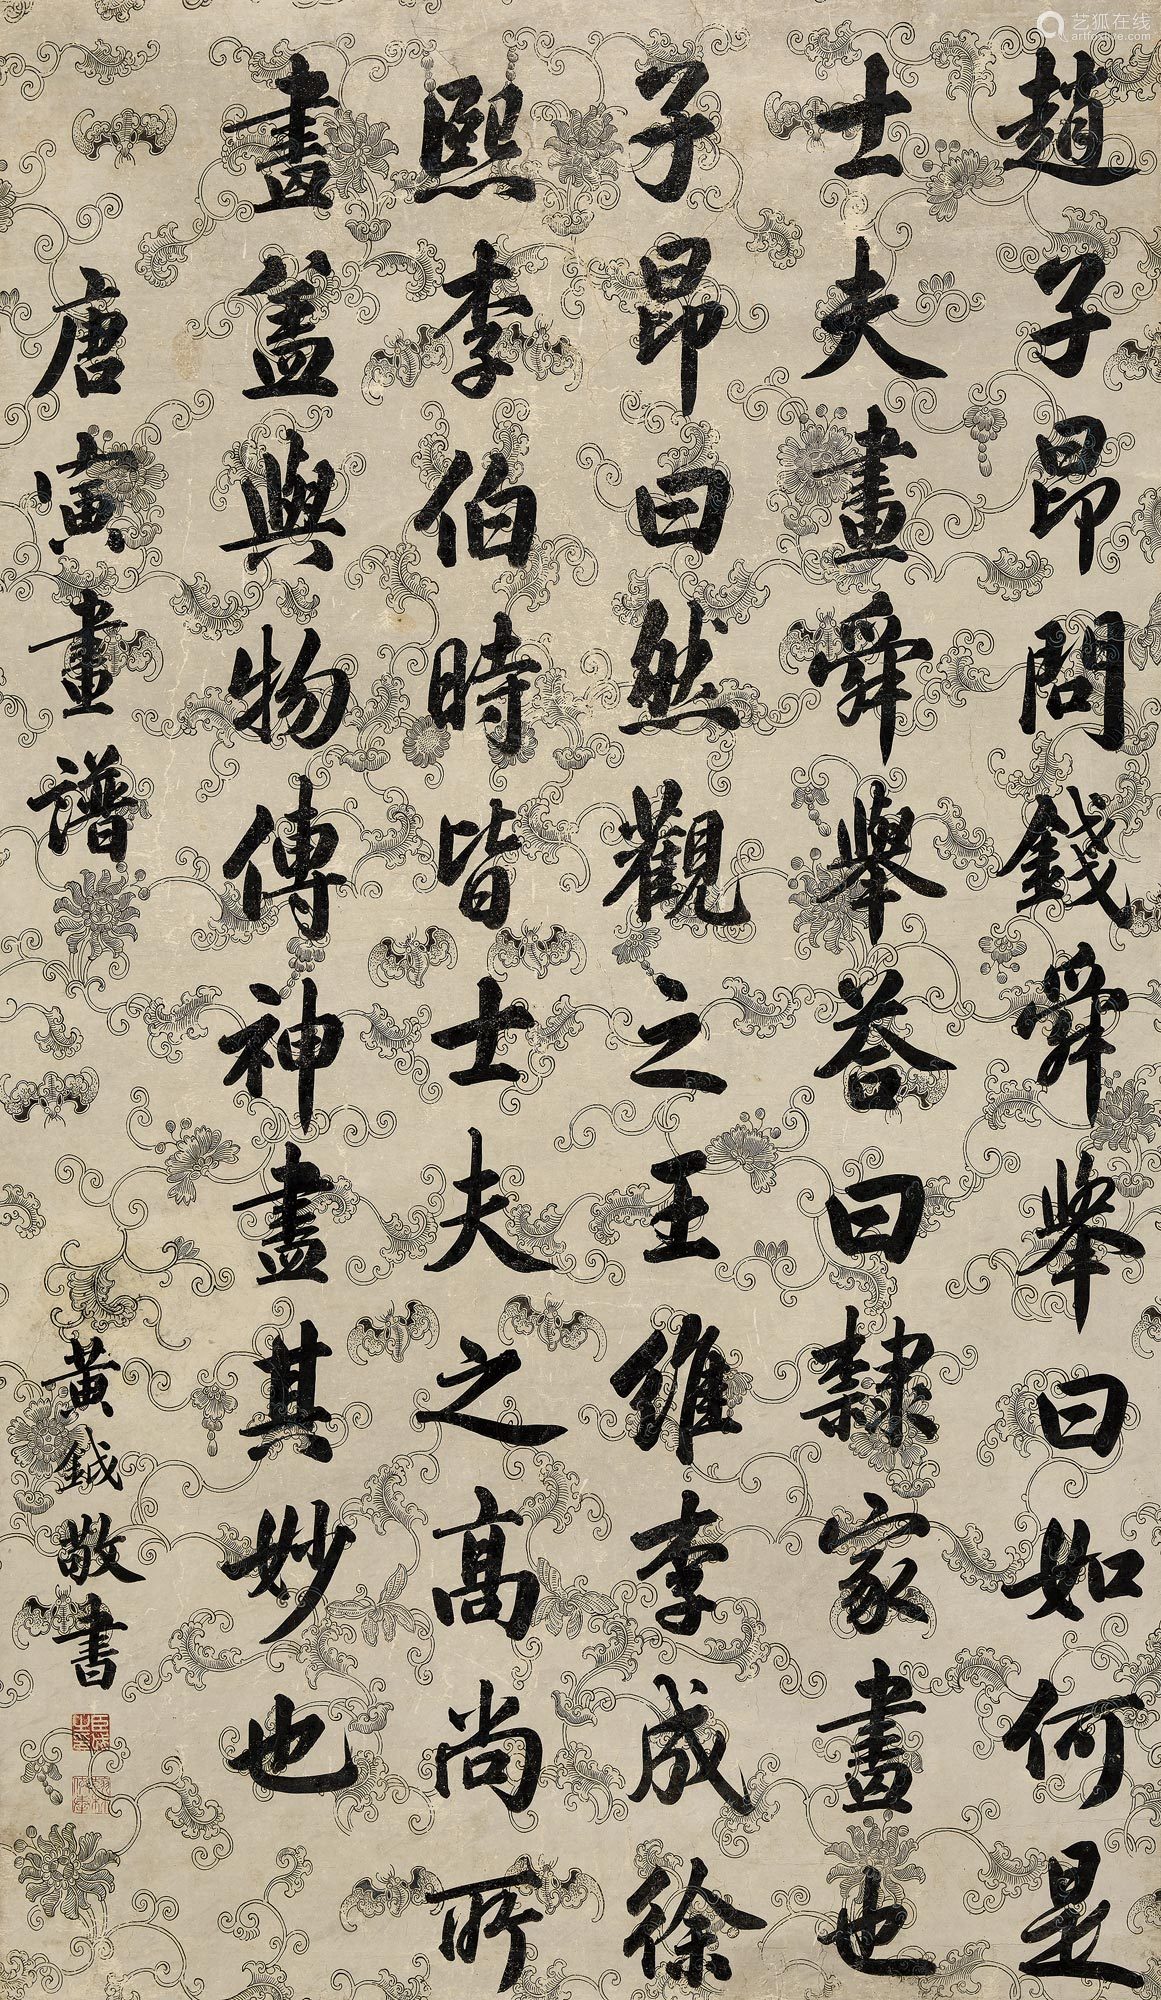 趙子昂問錢舜舉曰如何是
士夫畫舜舉答曰隸家畫也
子昂曰然觀之王維李成徐
熙李伯時皆士夫之高尚所
畫盖與物傳神盡其妙也
唐寅畫譜
黄鉞敬書
艺狐在线
artfoxlive.com